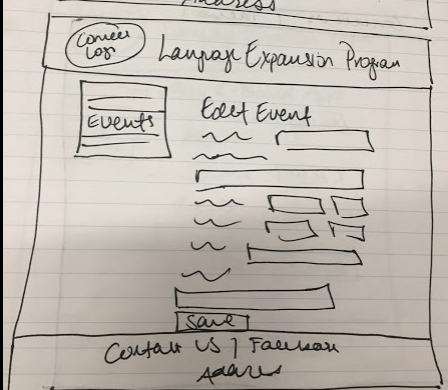 Address
Language Expansion Program
Events
Edit Event
Save
Contact US | Facebook
Address